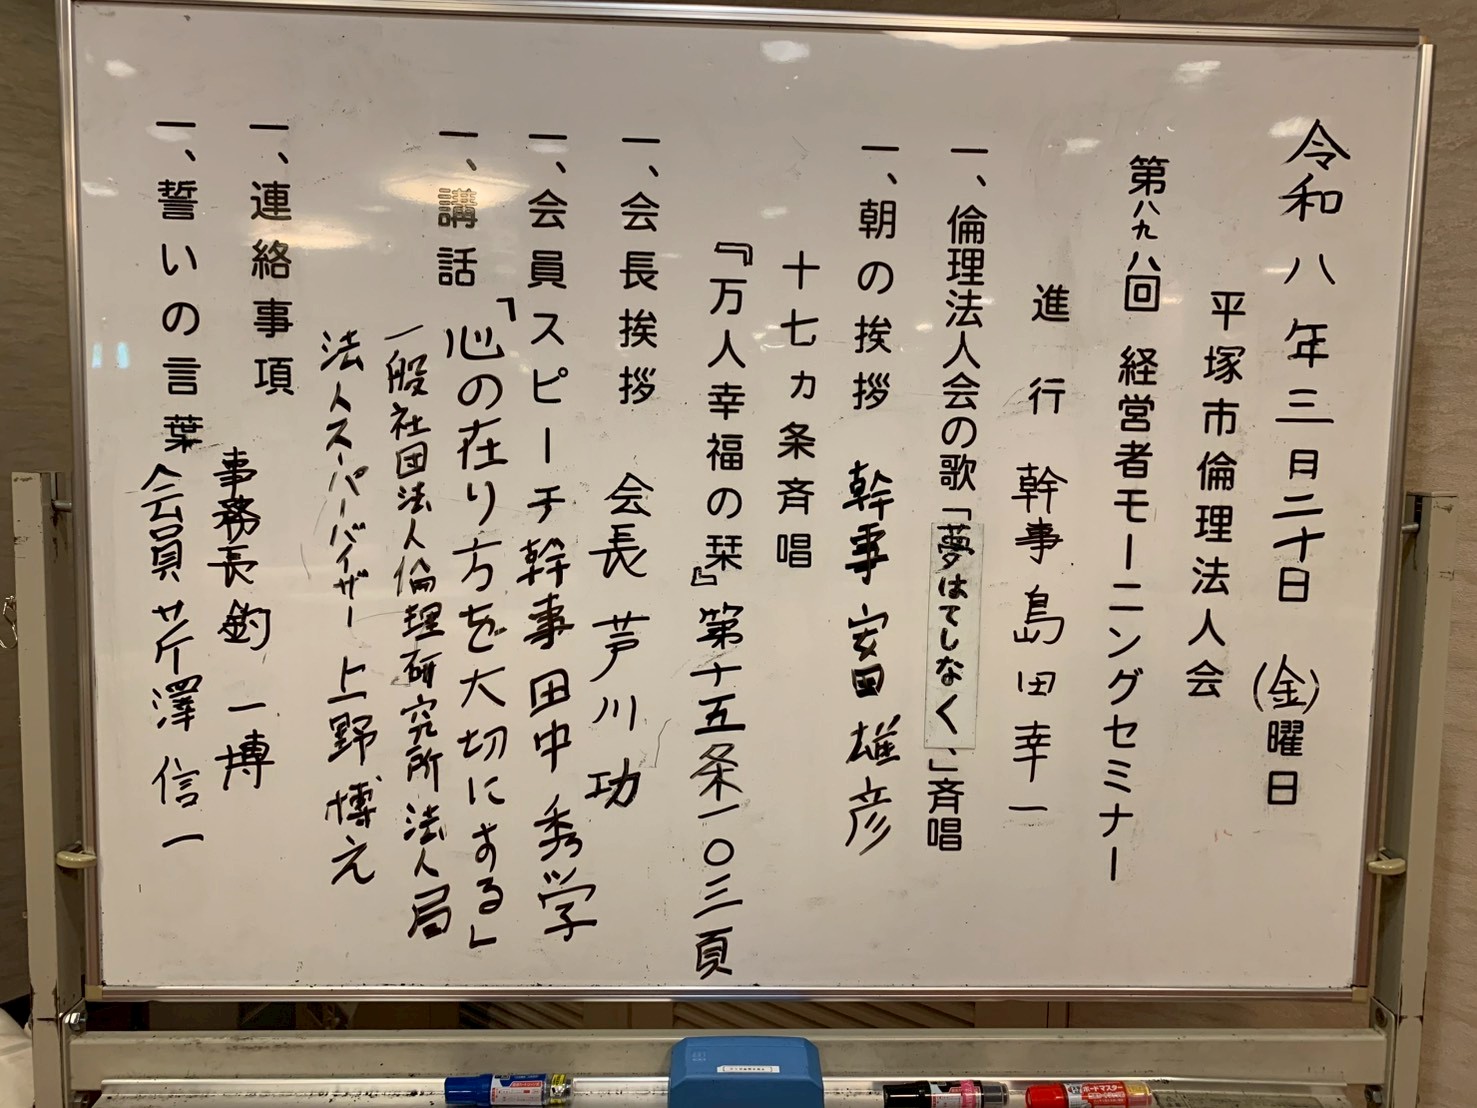 令和八年三月二十日(金)曜日
平塚市倫理法人会
第八九八回 経営者モーニングセミナー
進行 幹事 島田幸一
一、倫理法人会の歌「夢はてしなく、」斉唱
一、朝の挨拶 幹事 安田雄彦
十七ヵ条斉唱
『万人幸福の栞』第十五条一〇三頁
一、会長挨拶 会長 芦川功
一、会員スピーチ 幹事 田中秀学
一、講話「心の在り方を大切にする」
一般社団法人倫理研究所法人局
法人スーパーバイザー 上野博之
一、連絡事項 事務長 釣一博
一、誓いの言葉 会員 芹澤信一
ボードマスター